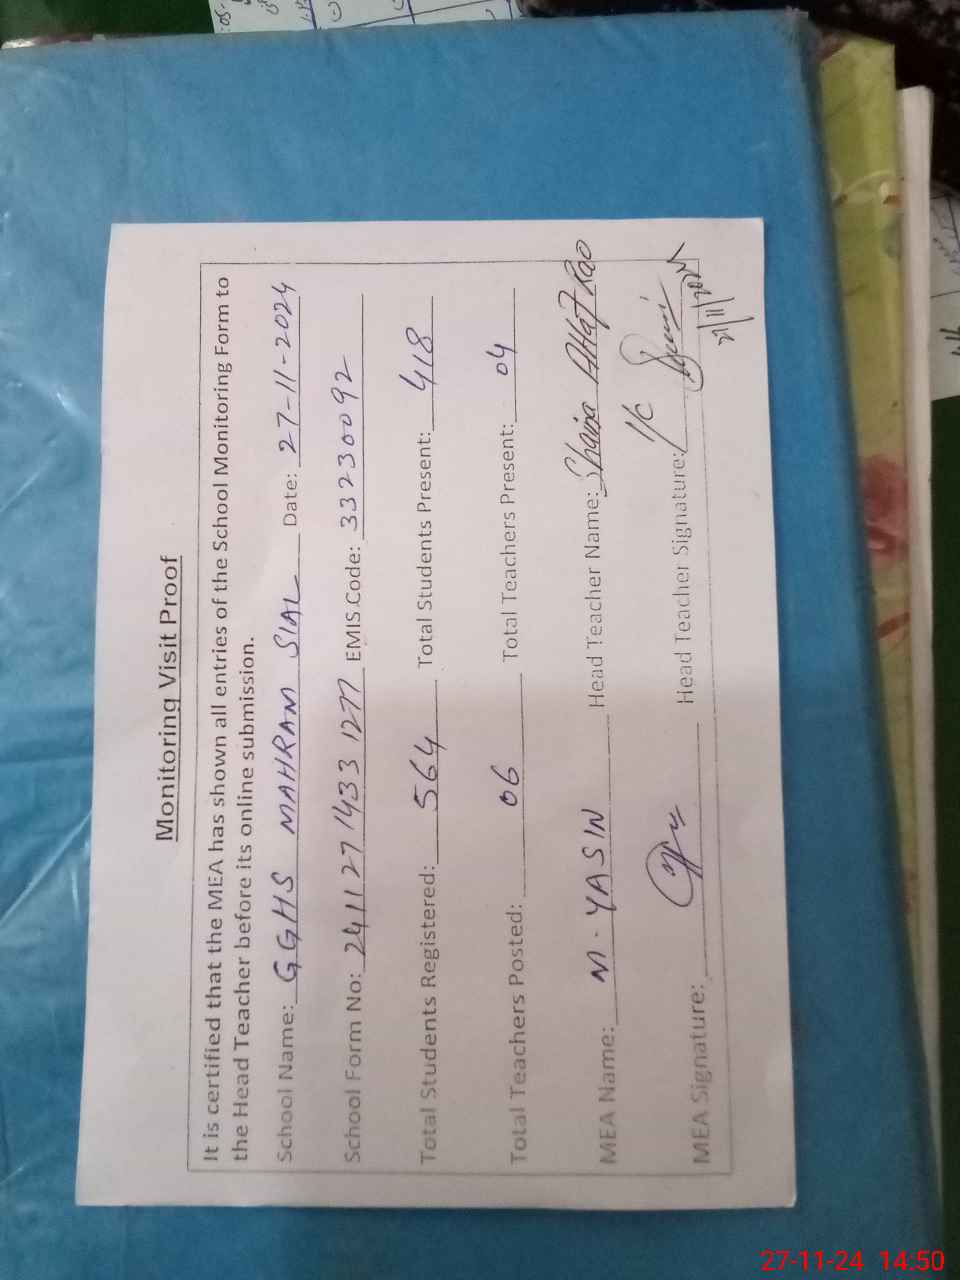 Monitoring Visit Proof
It is certified that the MEA has shown all entries of the School Monitoring Form to
the Head Teacher before its online submission.
School Name: GGHS MAHRAM SIAL Date: 27-11-2024
School Form No: 241127 1433 1277 EMIS Code: 33230092
Total Students Registered: 564 Total Students Present: 418
Total Teachers Posted: 06 Total Teachers Present: 04
MEA Name: M. YASIN Head Teacher Name: Altaf Rao
MEA Signature: Head Teacher Signature: I/C
27-11-24 14:50